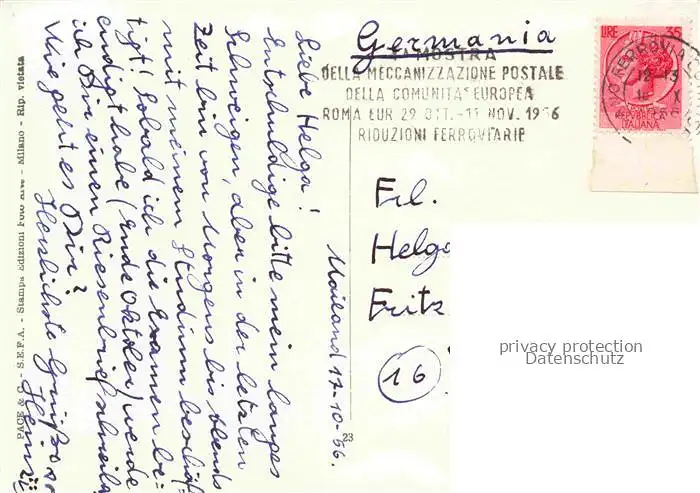 PACE & C. - S.E.F.A. - Stampa Edizioni Foto Arte - Milano - Rip. vietata
Mailand 17-10-56.
Liebe Helga!
Entschuldige bitte mein langes
Schweigen, aber in der letzten
Zeit bin von Morgens bis Abends
mit meinem Studium beschäf=
tigt! Sobald ich die Examen be=
endigt habe (Ende Oktober) werde
ich Dir einen Riesenbrief
Wie geht es Dir?
Herzlichste Grüße
23
Germania
MOSTRA
DELLA MECCANIZZAZIONE POSTALE
DELLA COMUNITA' EUROPEA
ROMA EUR 29 OTT. - 11 NOV. 1956
RIDUZIONI FERROVIARIE
LIRE 35
REPUBBLICA
ITALIANA
FERROVIA
12-13
Frl.
Helga
Fritz
16
privacy protection
Datenschutz